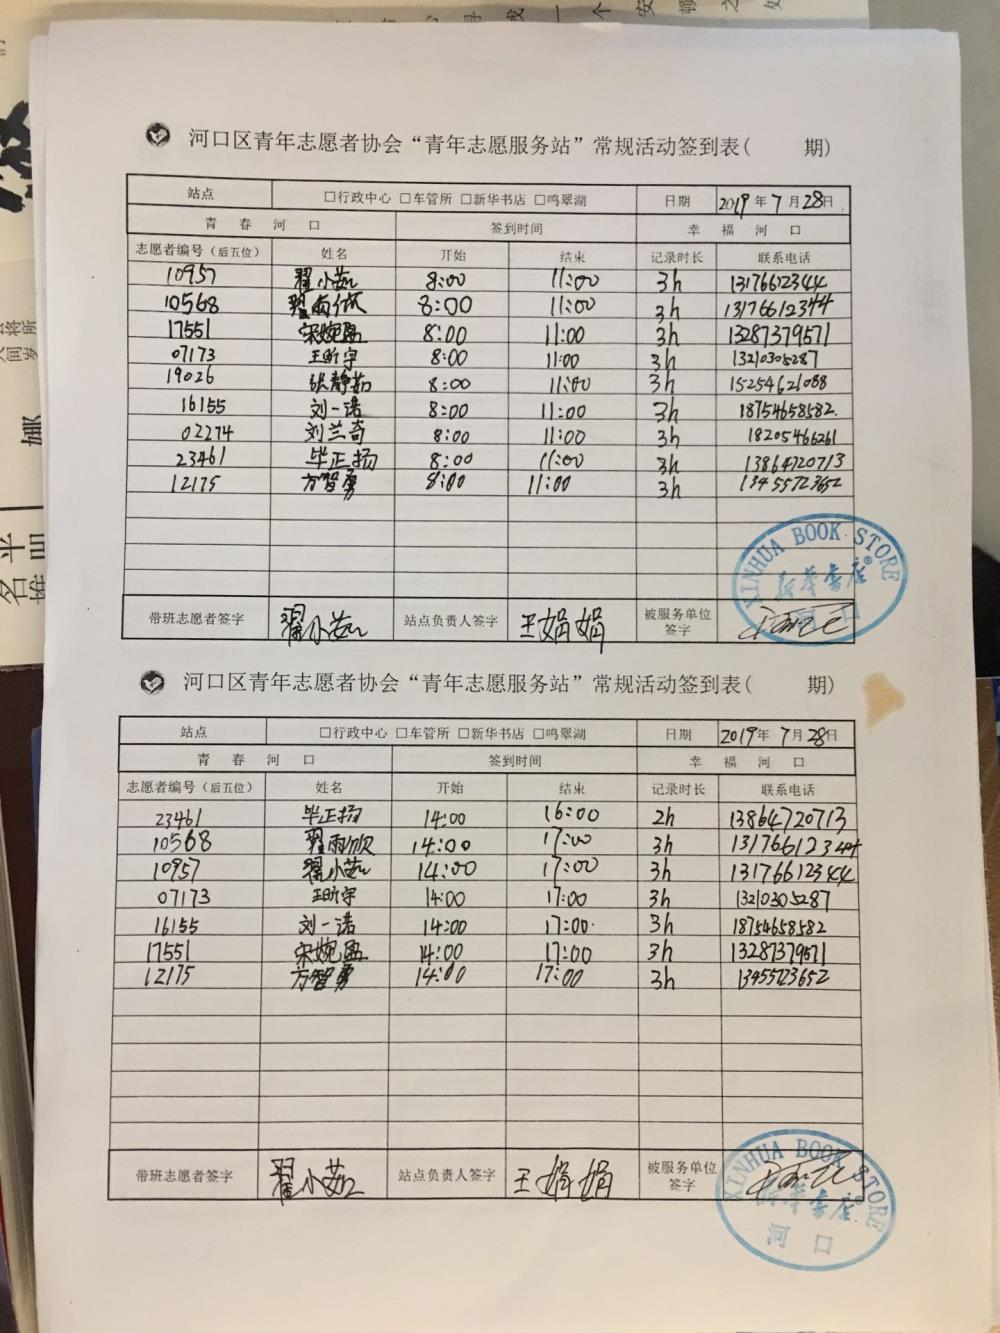 河口区青年志愿者协会“青年志愿服务站”常规活动签到表( 期)
站点 □行政中心 □车管所 □新华书店 □鸣翠湖 日期 2019年7月28日
青春河口 签到时间 幸福河口
志愿者编号（后五位） 姓名 开始 结束 记录时长 联系电话
10957 翟小茹 8:00 11:00 3h 13176612344
10568 翟雨欣 8:00 11:00 3h 13176612344
17551 宋婉盈 8:00 11:00 3h 13287379571
07173 王昕宇 8:00 11:00 3h 13210305287
19026 张静茹 8:00 11:00 3h 15254621088
16155 刘一诺 8:00 11:00 3h 18754658582
02274 刘兰奇 8:00 11:00 3h 18205466261
23461 毕正扬 8:00 11:00 3h 13864720713
12175 方智勇 8:00 11:00 3h 13455723652
XINHUA BOOK STORE
新华书店
河口
带班志愿者签字 翟小茹 站点负责人签字 王娟娟 被服务单位签字
河口区青年志愿者协会“青年志愿服务站”常规活动签到表( 期)
站点 □行政中心 □车管所 □新华书店 □鸣翠湖 日期 2019年7月28日
青春河口 签到时间 幸福河口
志愿者编号（后五位） 姓名 开始 结束 记录时长 联系电话
23461 毕正扬 14:00 16:00 2h 13864720713
10568 翟雨欣 14:00 17:00 3h 13176612344
10957 翟小茹 14:00 17:00 3h 13176612344
07173 王昕宇 14:00 17:00 3h 13210305287
16155 刘一诺 14:00 17:00 3h 18754658582
17551 宋婉盈 14:00 17:00 3h 13287379571
12175 方智勇 14:00 17:00 3h 13455723652
带班志愿者签字 翟小茹 站点负责人签字 王娟娟 被服务单位签字
XINHUA BOOK STORE
新华书店
河口